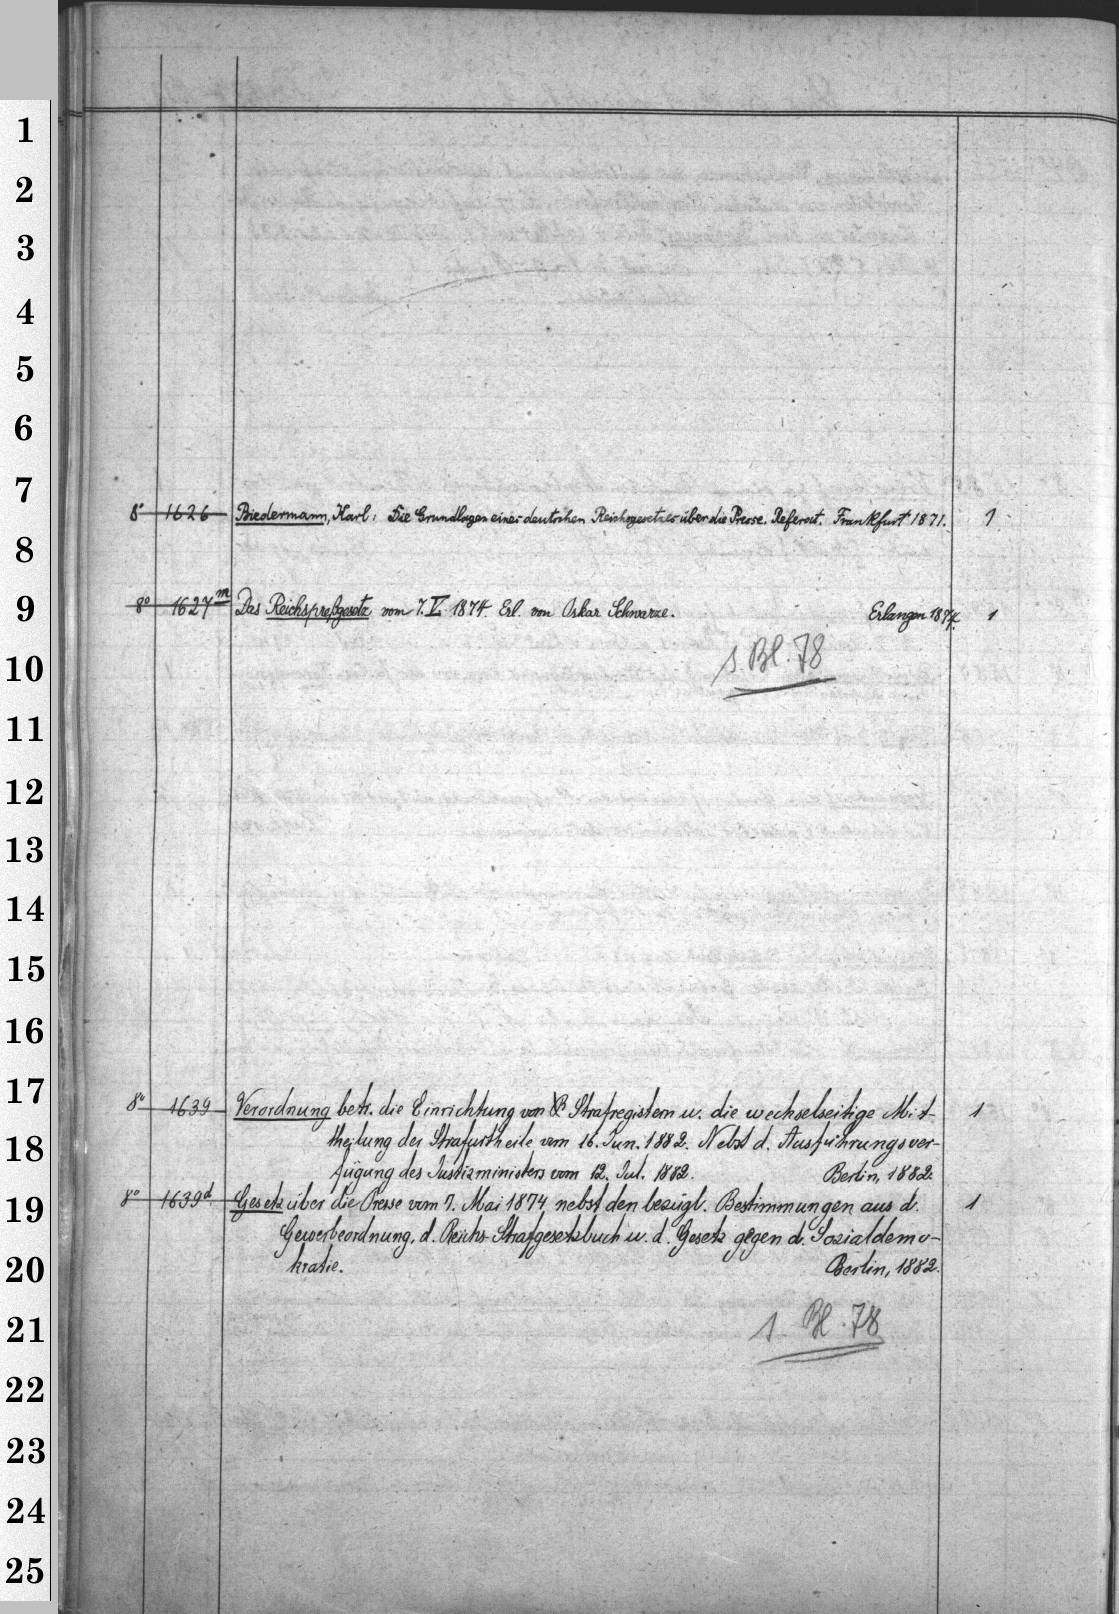 1
2
3
4
5
6
7
8° 1626 Biedermann, Karl: Die Grundlagen eines deutschen Reichsgesetzes über die Presse. Referat. Frankfurt 1871. 1
8
9
8° 1627m Das Reichspreßgesetz vom 7. V. 1874. Erl. von Oskar Schwarze. Erlangen 1874. 1
s. Bl. 78
10
11
12
13
14
15
16
17
8° 1639 Verordnung betr. die Einrichtung von Strafregistern u. die wechselseitige Mit- 1
18
theilung der Strafurtheile vom 16. Jun. 1882. Nebst d. Ausführungsver-
fügung des Justizministers vom 12. Jul. 1882. Berlin, 1882.
19
8° 1639d Gesetz über die Presse vom 7. Mai 1874, nebst den bezügl. Bestimmungen aus d. 1
Gewerbeordnung, d. Reichs-Strafgesetzbuch u. d. Gesetz gegen d. Sozialdemo-
20
kratie. Berlin, 1882.
21
s. Bl. 78
22
23
24
25